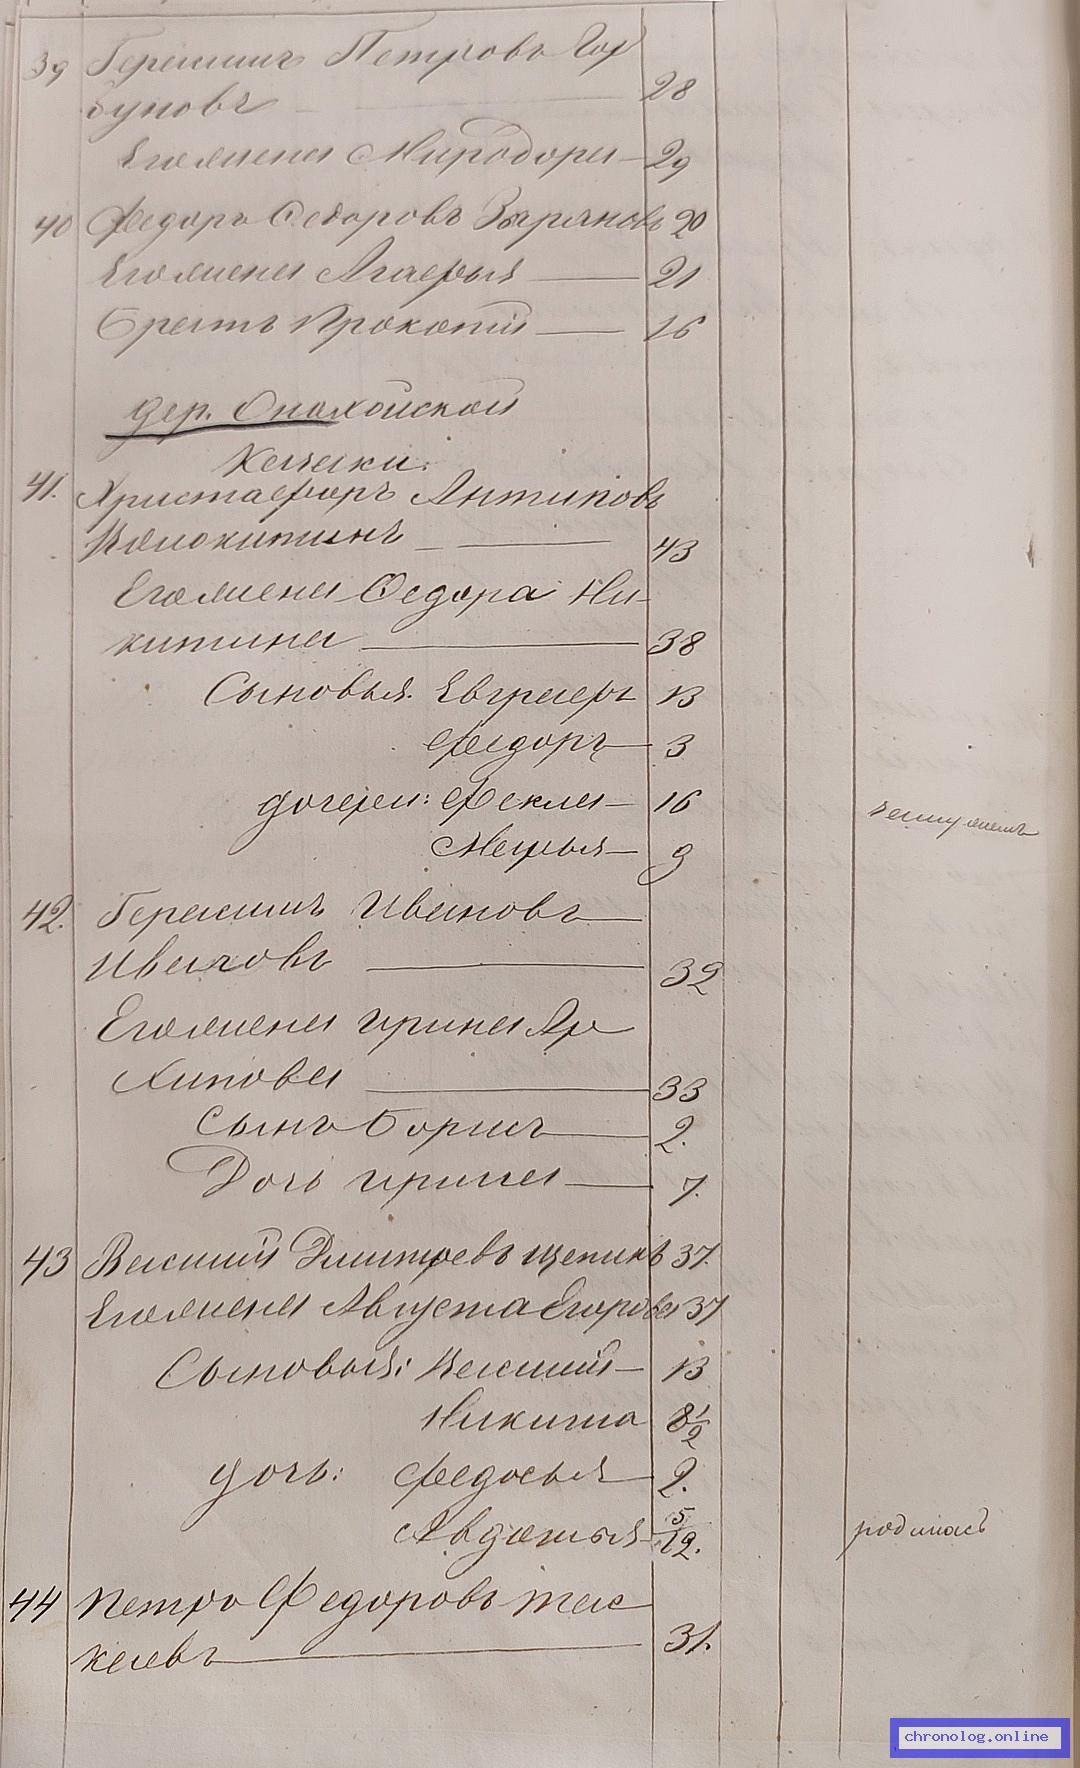 39 Герасимъ Петровъ Гор
буновъ — 28
Его жена Миродора — 29
40 Федоръ Федоровъ Зыряновъ 20
Его жена Агафья — 21
Братъ Прокопій — 16
дер. Опахойской
41. Христафоръ Антиповъ
43
Его жена Федора Ни-
китина — 38
Сыновья. Евграфъ 13
Федоръ — 3
дочери: Фекла — 16
Марья — 9
42. Герасимъ Ивановъ
Ивановъ — 32
Его жена Ирина Ар
хипова — 33
Сынъ Борисъ — 2.
Дочь Ирина — 7.
43 Василий Дмитревъ Щепинъ 37.
Его жена Августа Егорова 37
Сыновья: Василий — 13
Никита 8 1/2
дочь: Федосья — 2.
Авдотья — 5/12. родилась
44 Петро Федоровъ
31.
chronolog.online